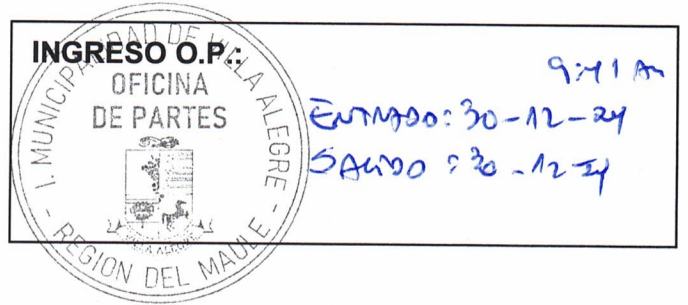 INGRESO O.P.:
I. MUNICIPALIDAD DE VILLA ALEGRE
OFICINA
DE PARTES
- REGION DEL MAULE -
VILLA ALEGRE
9:41 Am
ENTRADO: 30-12-24
SALIDO: 30-12-24